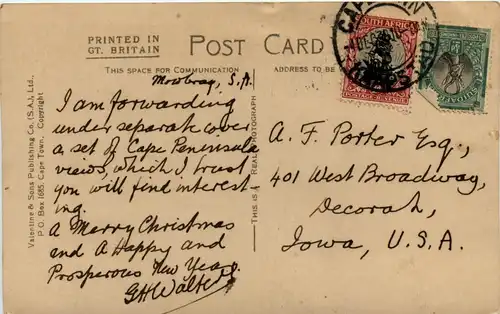 PRINTED IN
GT. BRITAIN
POST CARD
THIS SPACE FOR COMMUNICATION
ADDRESS TO BE
Mowbray, S.A.
I am forwarding
under separate cover
a set of Cape Peninsula
views, which I trust
you will find interest-
ing.
A Merry Christmas
and a Happy and
Prosperous New Year,
GH Walters
Valentine & Sons Publishing Co. (S.A.), Ltd.,
P.O. Box 1685, Cape Town. Copyright.
THIS IS A REAL PHOTOGRAPH
SOUTH AFRICA
POSTAGE REVENUE
A. F. Porter Esq.,
401 West Broadway,
Decorah,
Iowa, U.S.A.